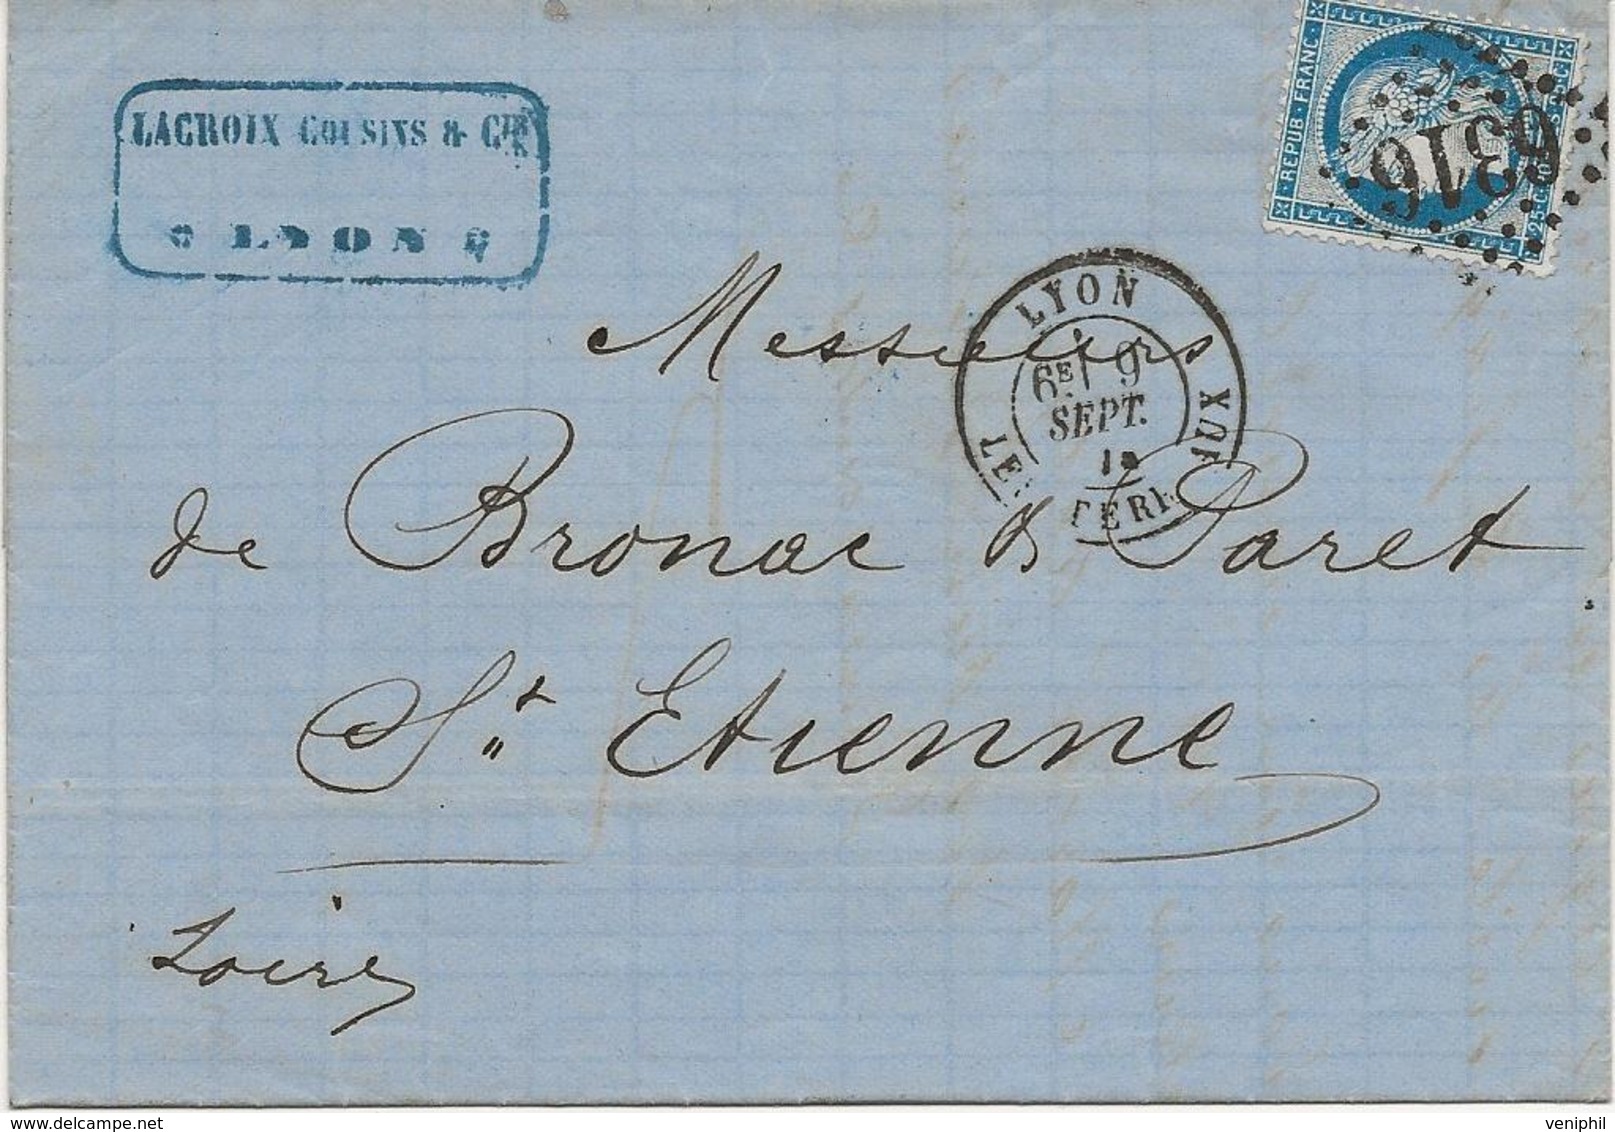 LACROIX COUSINS & CIE
LYON
REPUB. FRANC.
25 C.
6316
LYON
6E 9
SEPT.
LES TERREAUX
Messieurs
de Bronac & Paret
St Etienne
Loire
veniphil